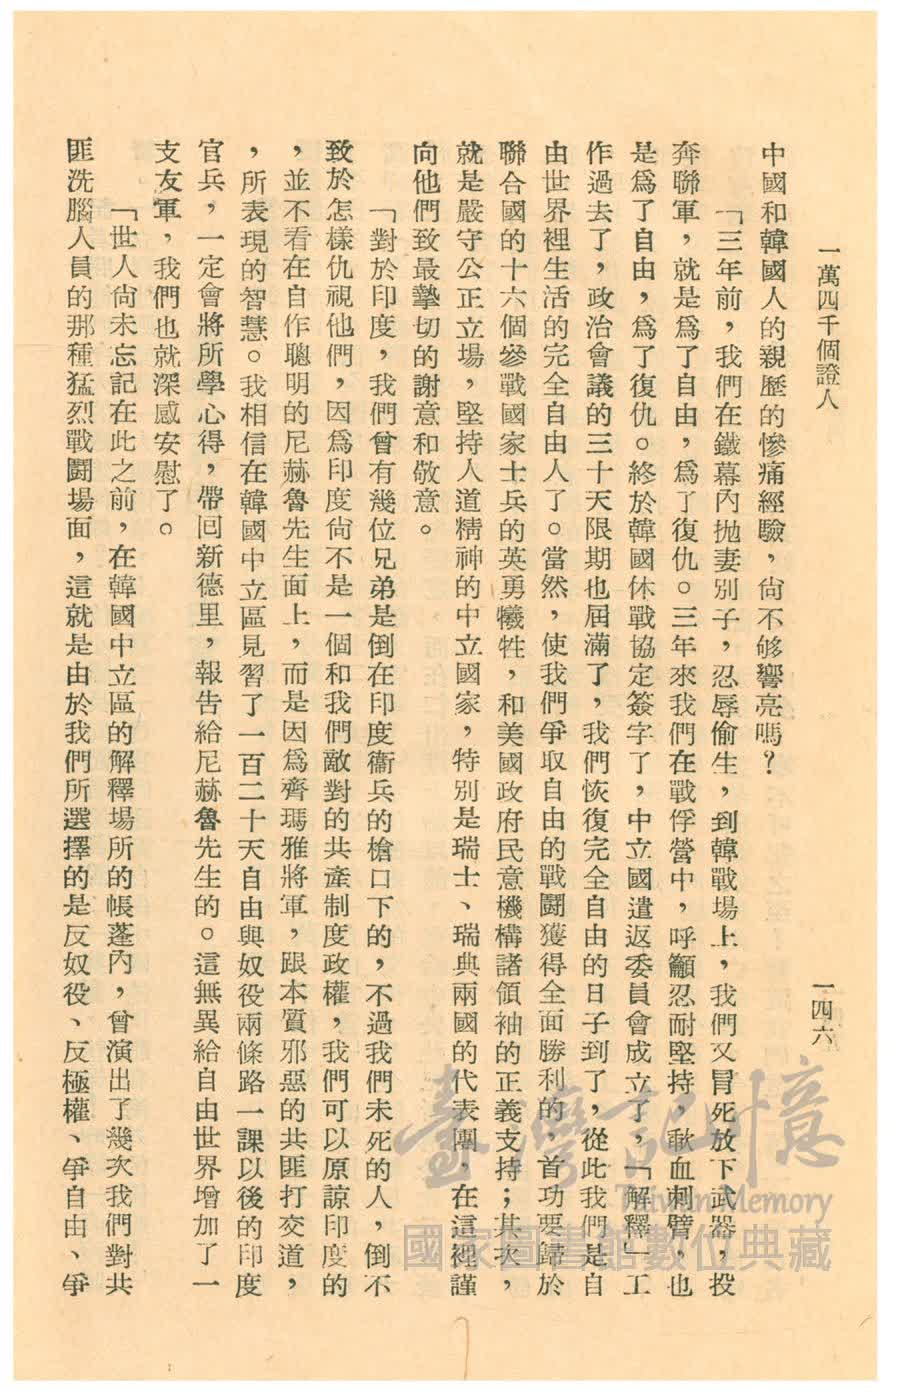 一萬四千個證人
一四六
中國和韓國人的親歷的慘痛經驗，尙不够響亮嗎？
「三年前，我們在鐵幕內抛妻別子，忍辱偷生，到韓戰場上，我們又冒死放下武器，投
奔聯軍，就是爲了自由，爲了復仇。三年來我們在戰俘營中，呼籲忍耐堅持，歃血刺臂，也
是爲了自由，爲了復仇。終於韓國休戰協定簽字了，中立國遣返委員會成立了，「解釋」工
作過去了，政治會議的三十天限期也屆滿了，我們恢復完全自由的日子到了，從此我們是自
由世界裡生活的完全自由人了。當然，使我們爭取自由的戰鬪獲得全面勝利的，首功要歸於
聯合國的十六個參戰國家士兵的英勇犧牲，和美國政府民意機構諸領袖的正義支持；其次，
就是嚴守公正立場，堅持人道精神的中立國家，特別是瑞士、瑞典兩國的代表團，在這裡謹
向他們致最摯切的謝意和敬意。
「對於印度，我們曾有幾位兄弟是倒在印度衞兵的槍口下的，不過我們未死的人，倒不
致於怎樣仇視他們，因爲印度尙不是一個和我們敵對的共產制度政權，我們可以原諒印度的
，並不看在自作聰明的尼赫魯先生面上，而是因爲齊瑪雅將軍，跟本質邪惡的共匪打交道，
，所表現的智慧。我相信在韓國中立區見習了一百二十天自由與奴役兩條路一課以後的印度
官兵，一定會將所學心得，帶囘新德里，報告給尼赫魯先生的。這無異給自由世界增加了一
支友軍，我們也就深感安慰了。
「世人尙未忘記在此之前，在韓國中立區的解釋場所的帳蓬內，曾演出了幾次我們對共
匪洗腦人員的那種猛烈戰鬪場面，這就是由於我們所選擇的是反奴役、反極權、爭自由、爭
臺灣記憶
Taiwan Memory
國家圖書館數位典藏